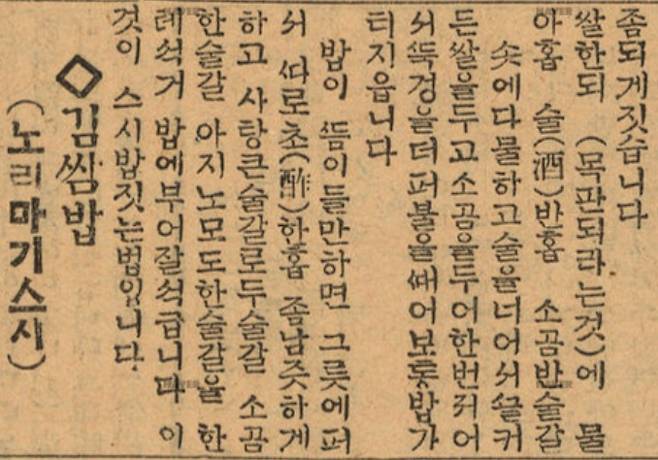 좀되게짓습니다
쌀한되 (목판되라는것)에 물
아홉 술(酒)반홉 소곰반술갈
솟에다물하고술을너어서ᄭᅳᆯ커
든쌀을두고소곰을두어한번저어
서ᄯᅮᆨ경을더퍼불을ᄯᅢ어보통밥가
티지읍니다
밥이 ᄯᅳᆷ이들만하면 그릇에퍼
서 ᄯᅡ로초(酢)한홉 좀남즛하게
하고 사탕큰술갈로두술갈 소곰
한술갈 아지노모도한술갈을 한
레석거 밥에부어잘석급니다 이
것이 스시밥짓는법입니다
◇김쌈밥
(노리마기스시)